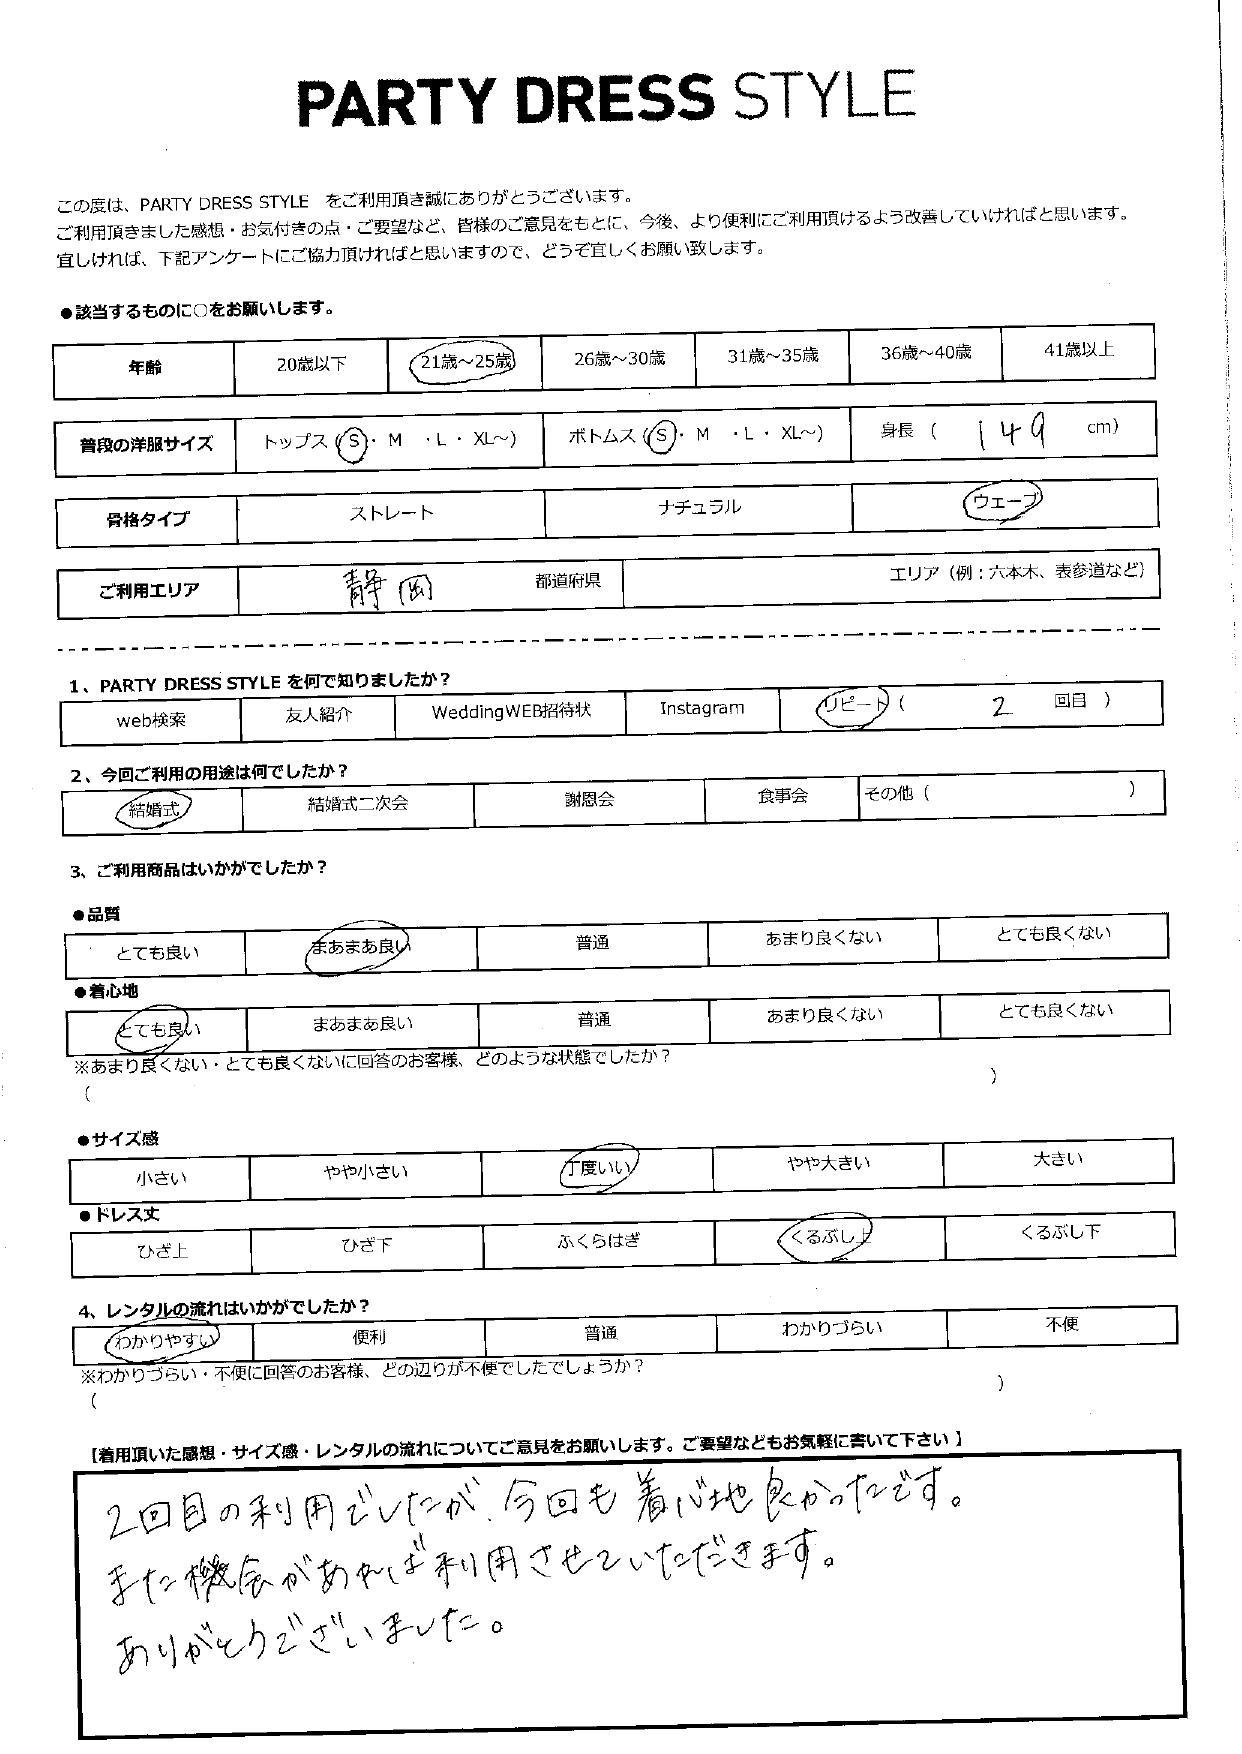 PARTY DRESS STYLE
この度は、PARTY DRESS STYLE をご利用頂き誠にありがとうございます。
ご利用頂きました感想・お気付きの点・ご要望など、皆様のご意見をもとに、今後、より便利にご利用頂けるよう改善していければと思います。
宜しければ、下記アンケートにご協力頂ければと思いますので、どうぞ宜しくお願い致します。
●該当するものに○をお願いします。
年齢 20歳以下 21歳～25歳 26歳～30歳 31歳～35歳 36歳～40歳 41歳以上
普段の洋服サイズ トップス（S・ M ・L・ XL～) ボトムス（S・ M ・L・ XL～) 身長（ 149 cm)
骨格タイプ ストレート ナチュラル ウェーブ
ご利用エリア 静岡 都道府県 エリア（例：六本木、表参道など）
1、PARTY DRESS STYLE を何で知りましたか？
web検索 友人紹介 WeddingWEB招待状 Instagram リピート（ 2 回目 ）
2、今回ご利用の用途は何でしたか？
結婚式 結婚式二次会 謝恩会 食事会 その他（ ）
3、ご利用商品はいかがでしたか？
●品質
とても良い まあまあ良い 普通 あまり良くない とても良くない
●着心地
とても良い まあまあ良い 普通 あまり良くない とても良くない
※あまり良くない・とても良くないに回答のお客様、どのような状態でしたか？
（ ）
●サイズ感
小さい やや小さい 丁度いい やや大きい 大きい
●ドレス丈
ひざ上 ひざ下 ふくらはぎ くるぶし上 くるぶし下
4、レンタルの流れはいかがでしたか？
わかりやすい 便利 普通 わかりづらい 不便
※わかりづらい・不便に回答のお客様、どの辺りが不便でしたでしょうか？
（ ）
【着用頂いた感想・サイズ感・レンタルの流れについてご意見をお願いします。ご要望などもお気軽に書いて下さい】
2回目の利用でしたが、今回も着心地良かったです。
また機会があれば利用させていただきます。
ありがとうございました。